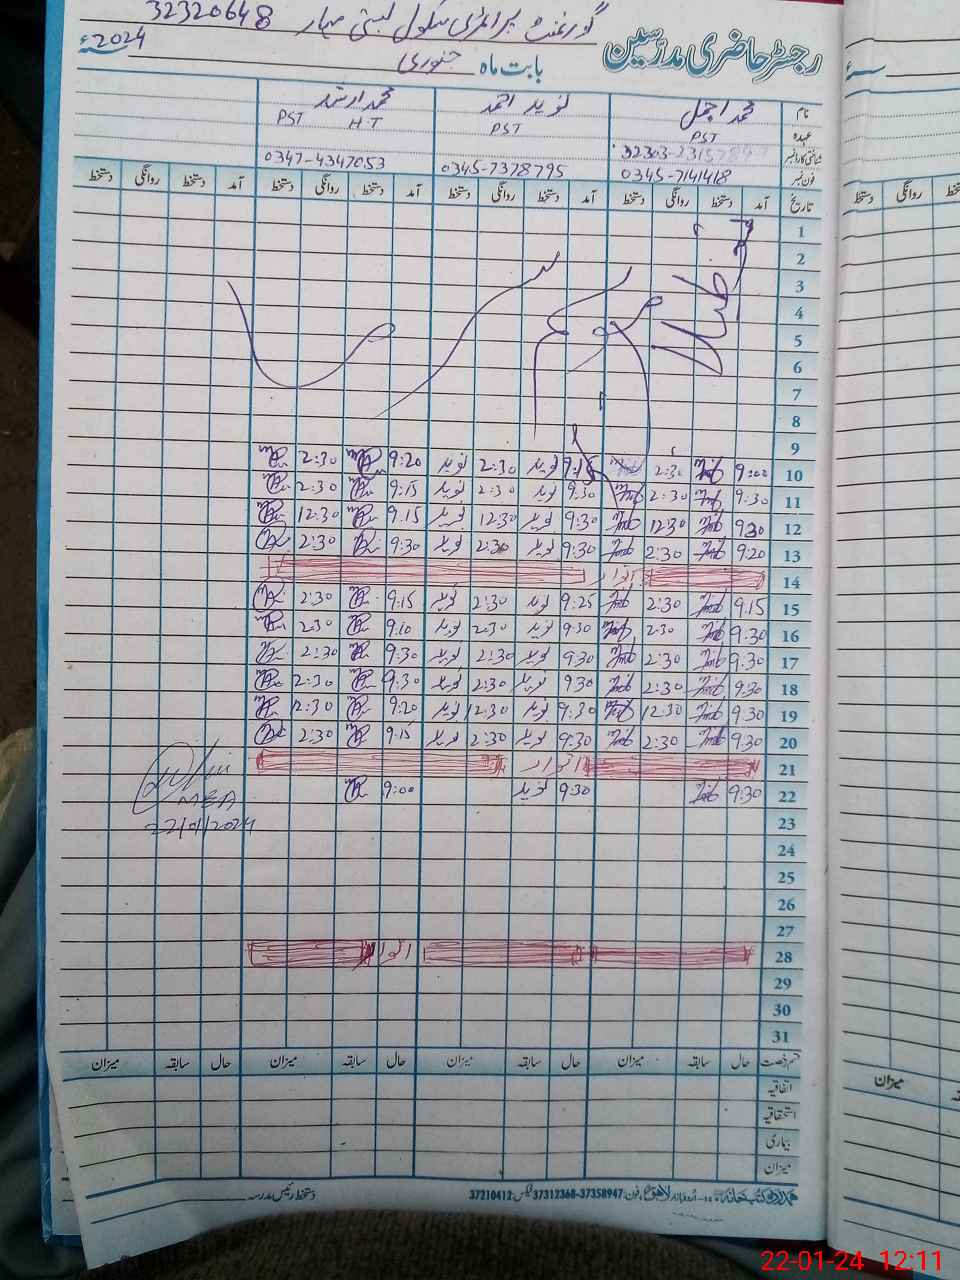 گورنمنٹ پرائمری سکول بستی مہار 32320648
رجسٹر حاضری مدرسین
بابت ماہ جنوری 2024ء
نام محمد اجمل نوید احمد محمد ارشد
عہدہ PST PST PST H.T
شناختی کارڈ نمبر
فون نمبر 0345-7141418 0345-7378795 0347-4347053
تاریخ آمد دستخط روانگی دستخط آمد دستخط روانگی دستخط آمد دستخط روانگی دستخط آمد دستخط روانگی دستخط
1
2
3
4
5
6
7
8
9
10 9:00 2:30 9:15 نوید 2:30 نوید 9:20 2:30
11 9:30 2:30 9:30 نوید 2:30 نوید 9:15 2:30
12 9:30 12:30 9:30 نوید 12:30 نوید 9:15 12:30
13 9:20 2:30 9:30 نوید 2:30 نوید 9:30 2:30
14 اتوار
15 9:15 2:30 9:25 نوید 2:30 نوید 9:15 2:30
16 9:30 2:30 9:30 نوید 2:30 نوید 9:10 2:30
17 9:30 2:30 9:30 نوید 2:30 نوید 9:30 2:30
18 9:30 2:30 9:30 نوید 2:30 نوید 9:30 2:30
19 9:30 12:30 9:30 نوید 12:30 نوید 9:20 12:30
20 9:30 2:30 9:30 نوید 2:30 نوید 9:15 2:30
21 اتوار
22 9:30 9:30 نوید 9:00
MEA
22/01/2024
23
24
25
26
27
28 اتوار
29
30
31
قسم رخصت حال سابقہ میزان حال سابقہ میزان حال سابقہ میزان حال سابقہ میزان
اتفاقیہ
استحقاقیہ
بیماری
میزان
ہمدرد کتب خانہ اردو بازار لاہور فون: 37358947-37312368 فیکس: 37210412
دستخط رئیس مدرسہ
روانگی دستخط
میزان
22-01-24 12:11